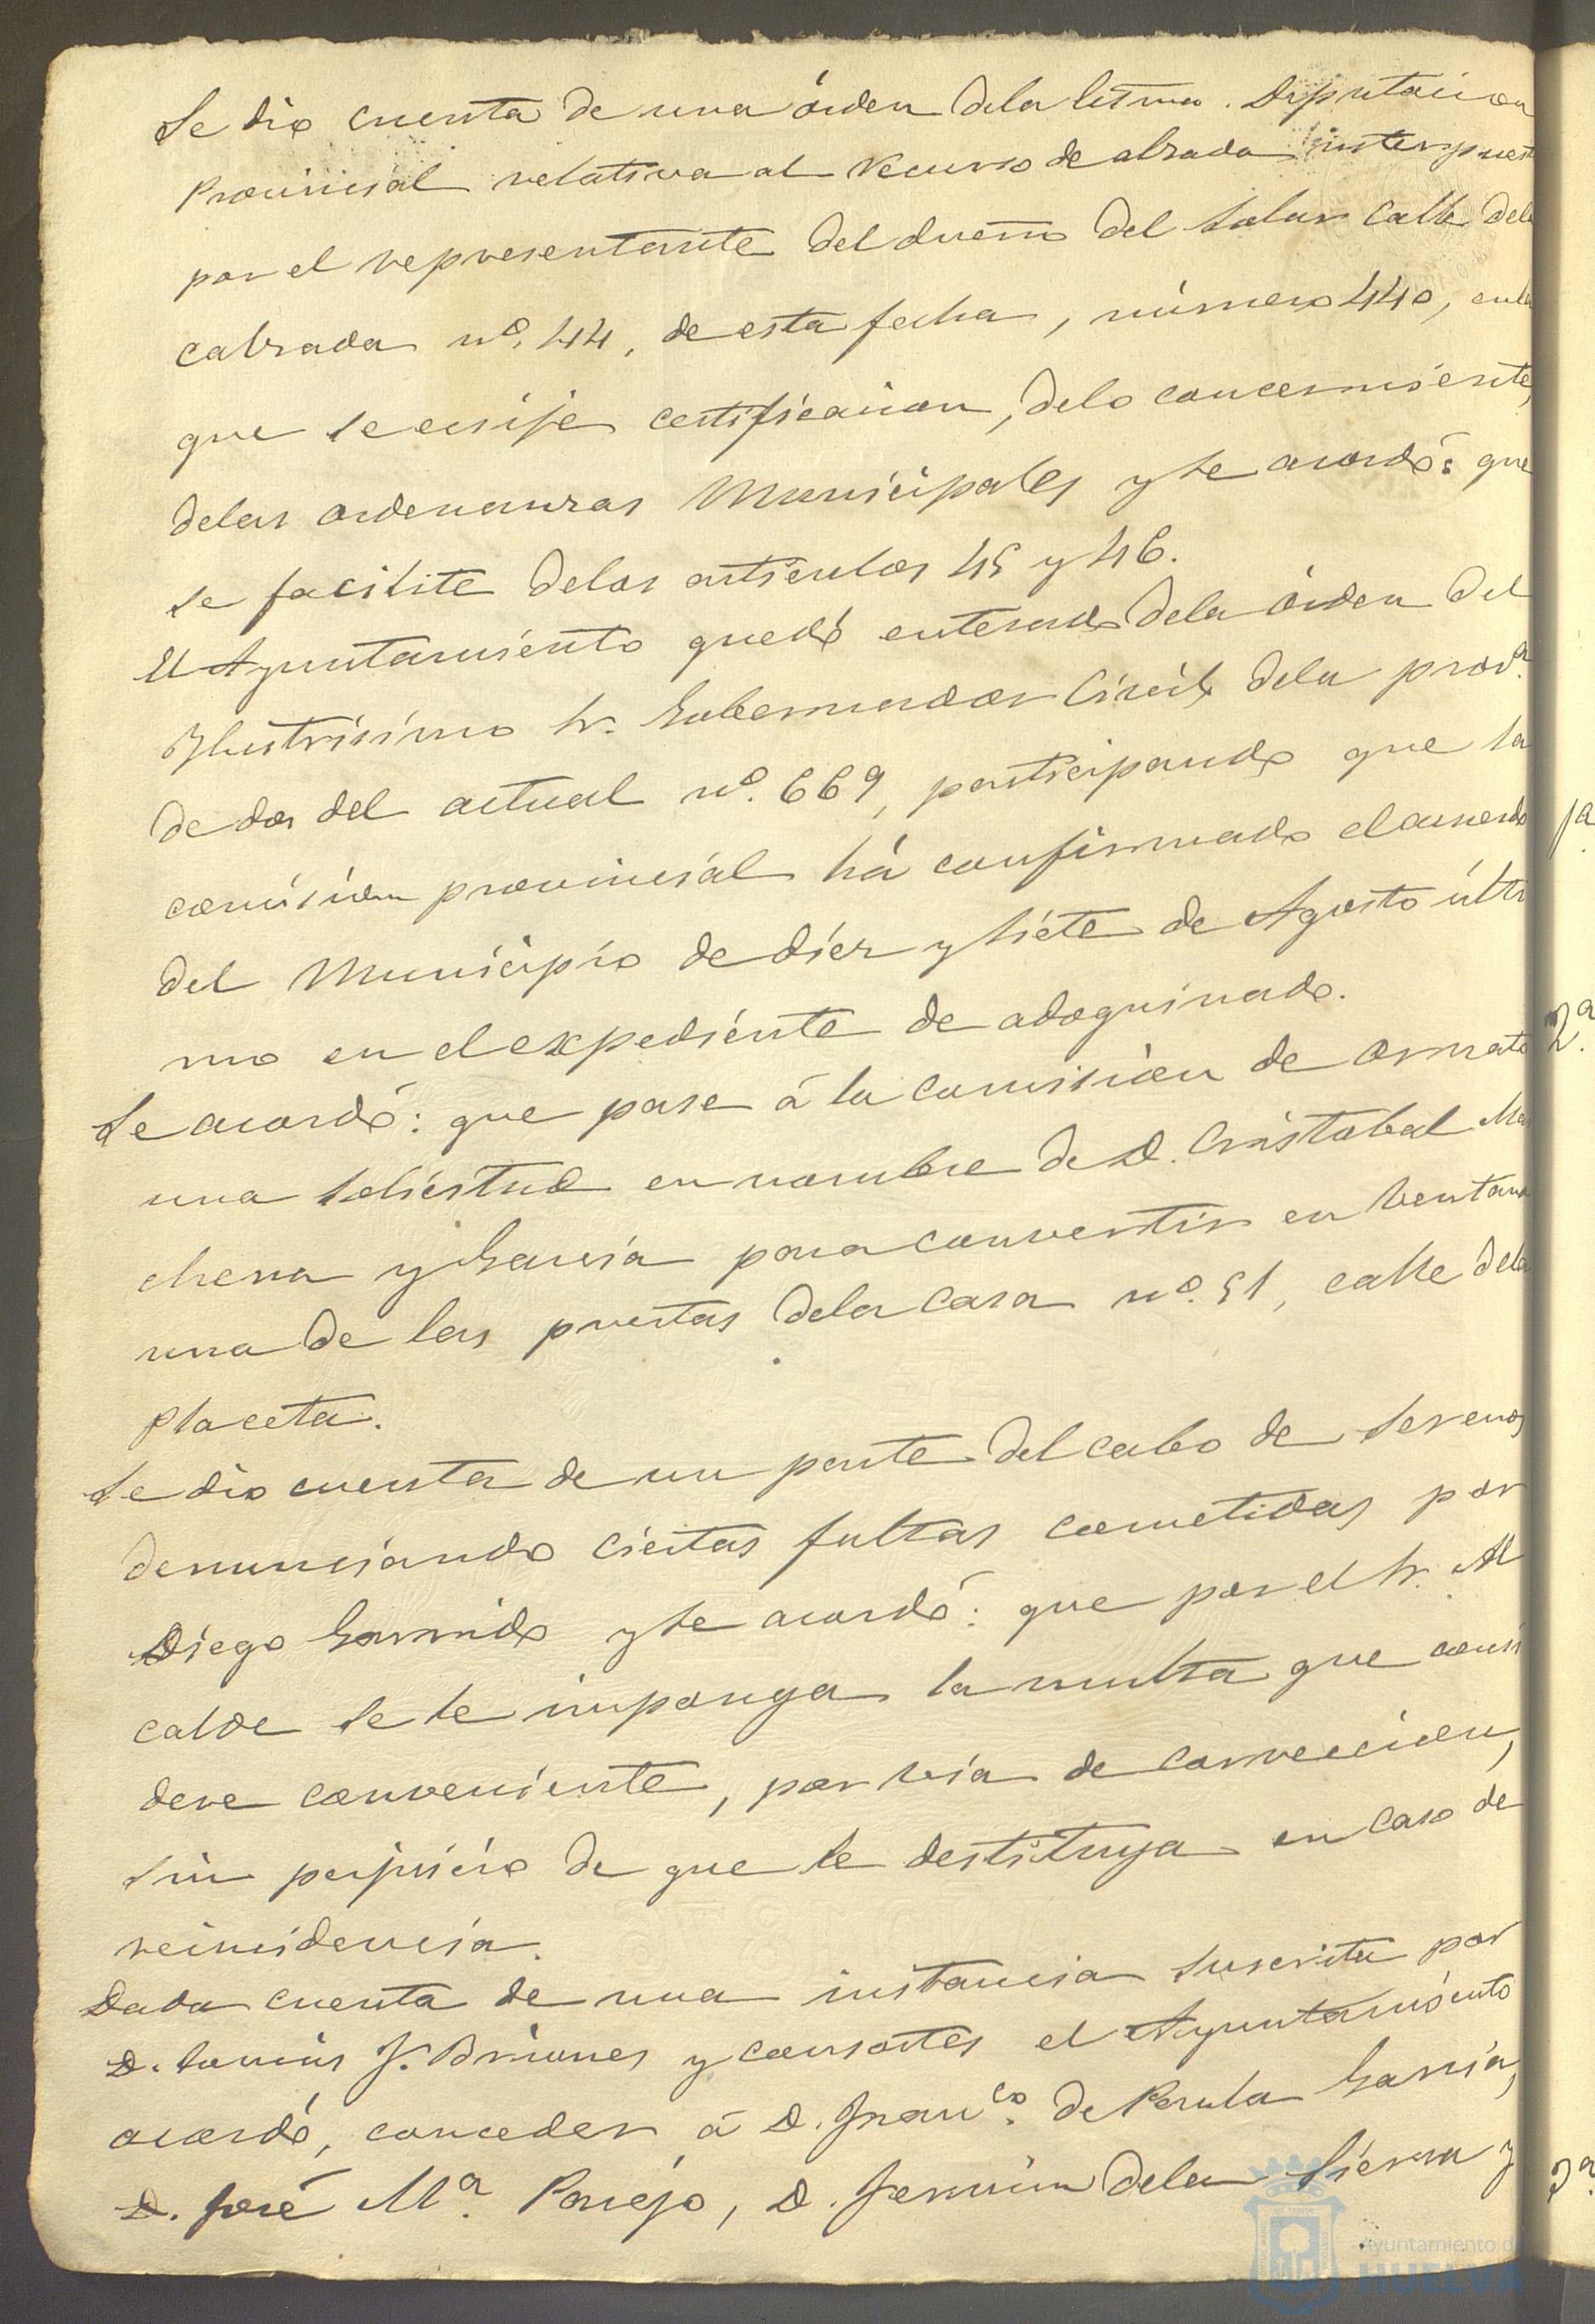 Se dio cuenta de una órden dela Excma. Diputacion
Provincial relativa al recurso de alzada interpuest
por el representante del dueño del solar calle dela
calzada nº. 44, de esta fecha, número 440, enla
que se exije certificacion, delo concerniente,
delas ordenanzas Municipales y se acordó: que
se facilite delos articulos 45 y 46.
El Ayuntamiento quedó enterado dela órden del
Ylustrísimo Sr. Gobernador Civil dela provª.
de dos del actual nº. 669, participando que la
comision provincial há confirmado el acuerdo
del Municipio de diez y siete de Agosto últi
mo en el expediente de adoquinado.
Se acordó: que pase á la comision de ornato
una solicitud en nombre de D. Cristobal Mar
chena y Garcia para convertir en ventana
una de las puertas dela casa nº. 51, calle dela
Placeta.
Se dio cuenta de un parte del cabo de serenos
denunciando ciertas faltas cometidas por
Diego Garrido y se acordó: que por el Sr. Al
calde se le imponga la multa que consi
dere conveniente, por via de correccion,
sin perjuicio de que se destituya en caso de
reincidencia.
Dada cuenta de una instancia suscrita por
D. J. Briones y consortes el Ayuntamiento
acordó, conceder á D. Franco. de Paula Garcia,
D. José Mª. Parejo, D. Fermin dela Sierra y
1ª
2ª.
3ª.
Ayuntamiento de
HUELVA